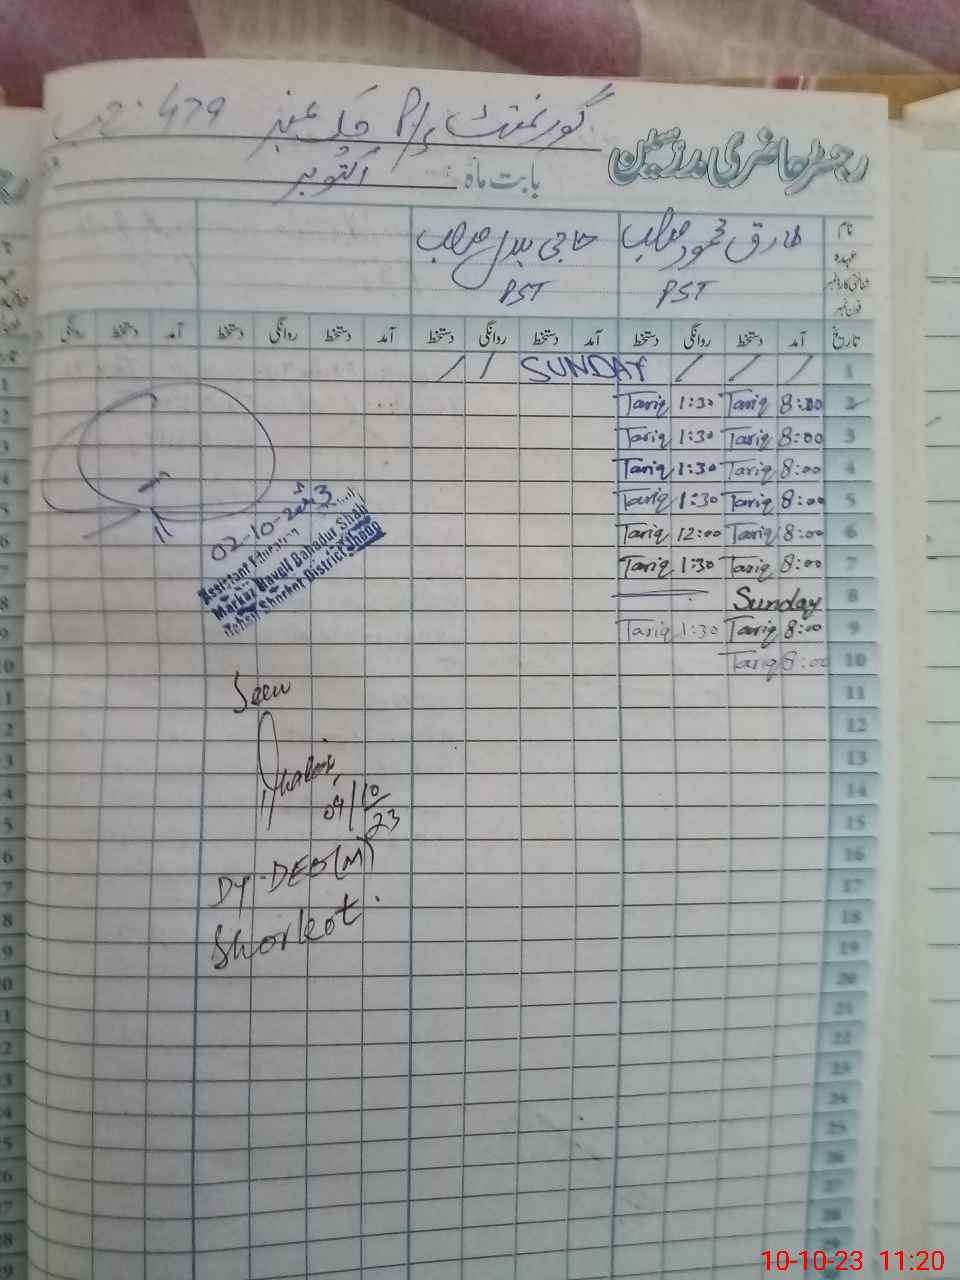 رجسٹر حاضری مدرسین گورنمنٹ P/S چک نمبر 479 ج ب
بابت ماہ اکتوبر
نام طارق محمود صاحب حاجی صاحب
عہدہ PST PST
شناختی کارڈ نمبر
فون نمبر
تاریخ آمد دستخط روانگی دستخط آمد دستخط روانگی دستخط آمد دستخط روانگی دستخط آمد دستخط روانگی
1 / / / SUNDAY / /
2 8:00 Tariq 1:30 Tariq
3 8:00 Tariq 1:30 Tariq
4 8:00 Tariq 1:30 Tariq
5 8:00 Tariq 1:30 Tariq
6 8:00 Tariq 12:00 Tariq
7 8:00 Tariq 1:30 Tariq
8 Sunday
9 8:00 Tariq 1:30 Tariq
10 8:00 Tariq
11
12
13
14
15
16
17
18
19
20
21
22
23
24
25
26
27
28
29
02-10-2023
Assistant Education
Markaz Haveli Bahadur Shah
Tehsil Shorkot District Jhang
Seen
09/10/23
Dy-DEO(M)
Shorkot.
10-10-23 11:20